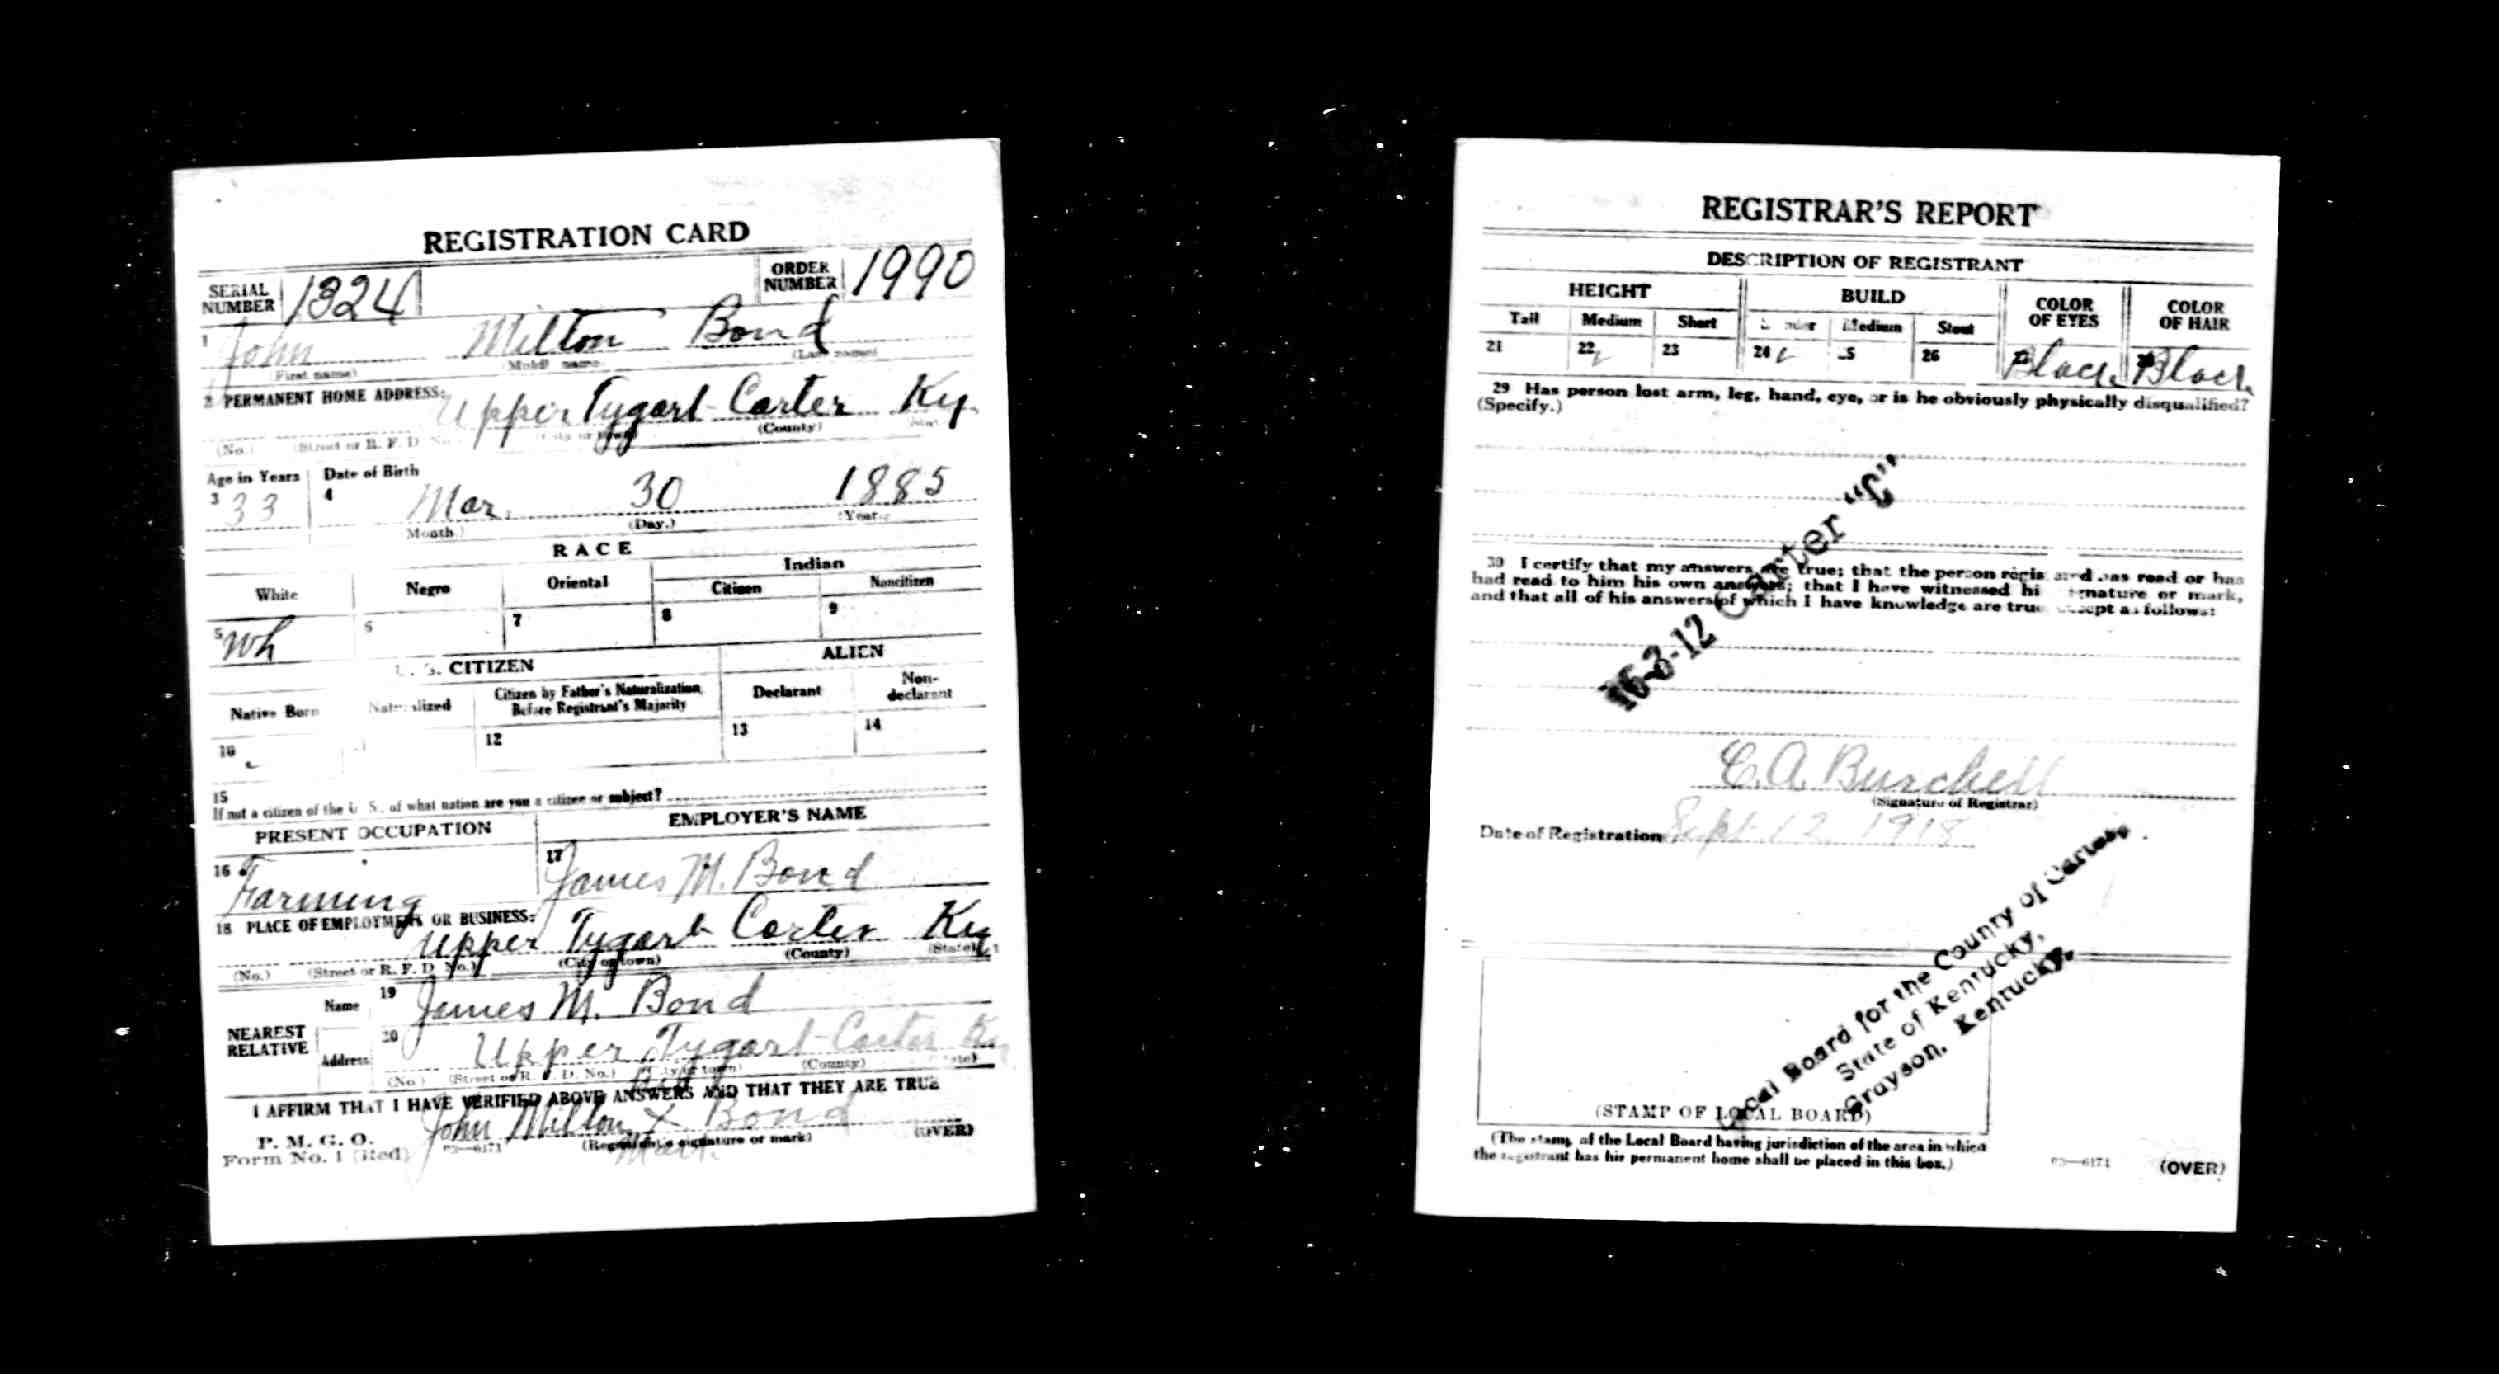 REGISTRATION CARD
SERIAL NUMBER 1324 ORDER NUMBER 1990
1 John Milton Bond
(First name) (Middle name) (Last name)
2 PERMANENT HOME ADDRESS: Upper Tygart Carter Ky.
(No.) (Street or R. F. D. No.) (City or town) (County) (State)
Age in Years Date of Birth
3 33 4 Mar. 30 1885
(Month.) (Day.) (Year.)
RACE
White Negro Oriental Indian
Citizen Noncitizen
5 Wh 6 7 8 9
U. S. CITIZEN ALIEN
Native Born Naturalized Citizen by Father's Naturalization Before Registrant's Majority Declarant Non-declarant
10 12 13 14
15
If not a citizen of the U. S., of what nation are you a citizen or subject?
PRESENT OCCUPATION EMPLOYER'S NAME
16 Farming 17 James M. Bond
18 PLACE OF EMPLOYMENT OR BUSINESS:
Upper Tygart Carter Ky
(No.) (Street or R. F. D. No.) (City or town) (County) (State)
NEAREST RELATIVE Name 19 James M. Bond
Address 20 Upper Tygart Carter Ky
(No.) (Street or R. F. D. No.) (City or town) (County) (State)
I AFFIRM THAT I HAVE VERIFIED ABOVE ANSWERS AND THAT THEY ARE TRUE
P. M. G. O.
Form No. 1 (Red) John Milton X Bond
(Registrant's signature or mark) (OVER)
Mark.
REGISTRAR'S REPORT
DESCRIPTION OF REGISTRANT
HEIGHT BUILD COLOR OF EYES COLOR OF HAIR
Tall Medium Short Slender Medium Stout
21 22 23 24 25 26 Black Black
29 Has person lost arm, leg, hand, eye, or is he obviously physically disqualified?
(Specify.)
16-3-12 Carter "C"
30 I certify that my answers are true; that the person registered has read or has
had read to him his own answers; that I have witnessed his signature or mark,
and that all of his answers of which I have knowledge are true, except as follows:
C. A. Burchett
(Signature of Registrar)
Date of Registration Sept 12 1918
Local Board for the County of Carter,
State of Kentucky,
Grayson, Kentucky.
(STAMP OF LOCAL BOARD)
(The stamp of the Local Board having jurisdiction of the area in which
the registrant has his permanent home shall be placed in this box.)
03—6171 (OVER)